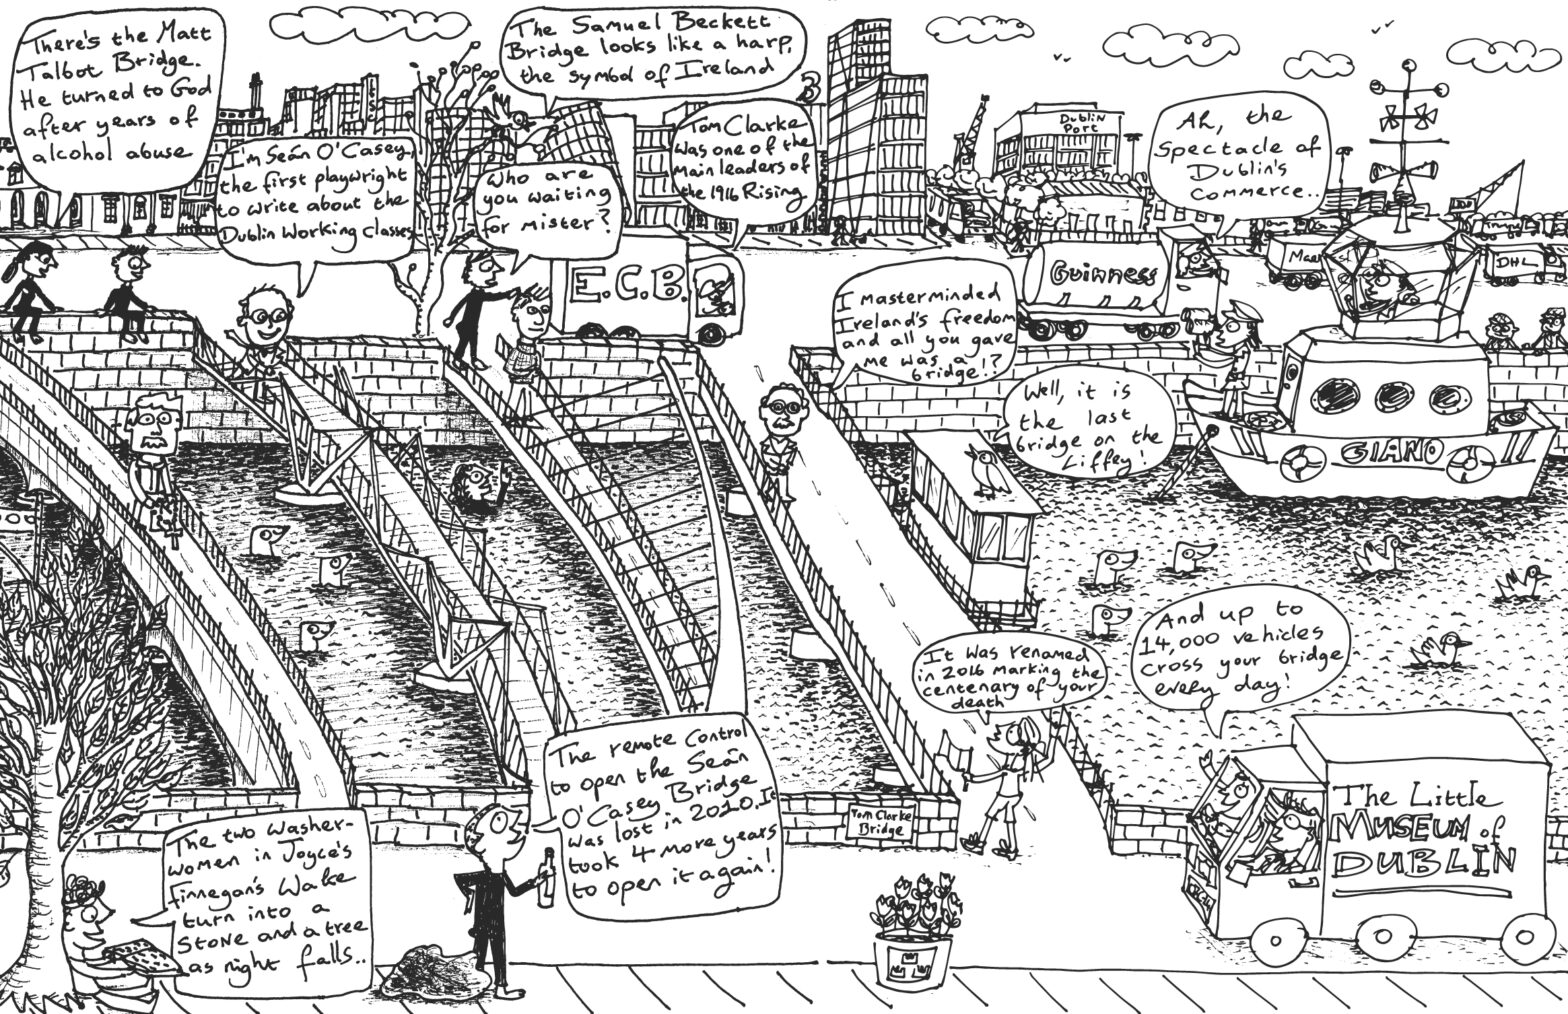 There's the Matt
Talbot Bridge.
He turned to God
after years of
alcohol abuse
I'm Seán O'Casey,
the first playwright
to write about the
Dublin Working Classes
The Samuel Beckett
Bridge looks like a harp,
the symbol of Ireland
Who are
you waiting
for Mister?
Tom Clarke
was one of the
main leaders of
the 1916 Rising
E.C.B.
Dublin
Port
Ah, the
Spectacle of
Dublin's
Commerce..
Guinness
DHL
I masterminded
Ireland's freedom
and all you gave
me was a
bridge!?
Well, it is
the last
bridge on the
Liffey!
GIANO
It was renamed
in 2016 marking the
centenary of your
death
And up to
14,000 vehicles
cross your bridge
every day!
The remote control
to open the Seán
O'Casey Bridge
was lost in 2010. It
took 4 more years
to open it again!
Tom Clarke
Bridge
The two washer-
women in Joyce's
Finnegan's Wake
turn into a
Stone and a tree
as night falls..
The Little
MUSEUM of
DUBLIN